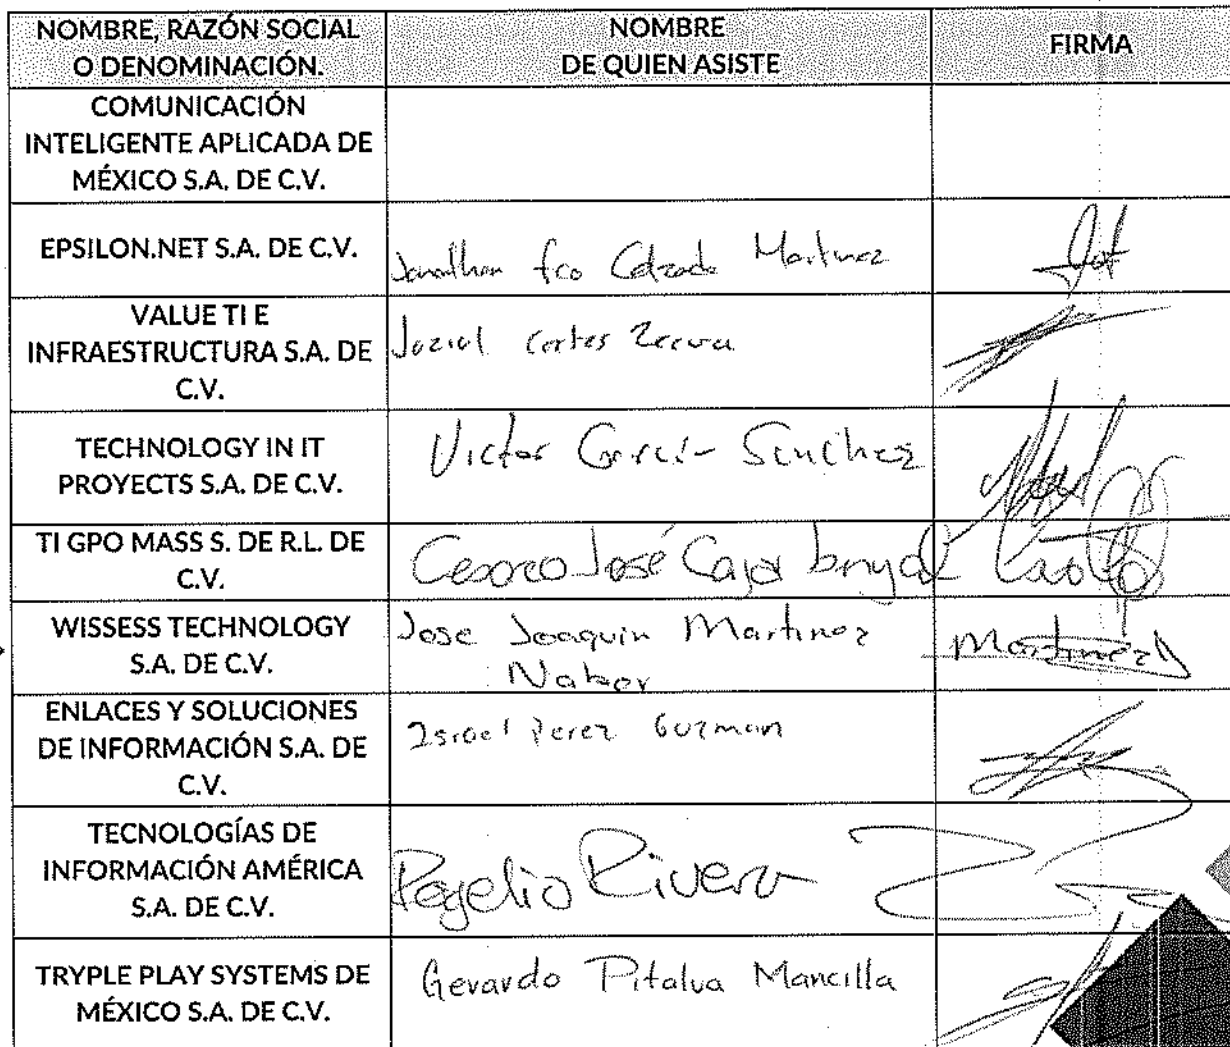 NOMBRE, RAZÓN SOCIAL
O DENOMINACIÓN.
NOMBRE
DE QUIEN ASISTE
FIRMA
COMUNICACIÓN
INTELIGENTE APLICADA DE
MÉXICO S.A. DE C.V.
EPSILON.NET S.A. DE C.V.
Jonathan fco Martinez
VALUE TI E
INFRAESTRUCTURA S.A. DE
C.V.
Cortes
TECHNOLOGY IN IT
PROYECTS S.A. DE C.V.
Victor Garcia Sanchez
TI GPO MASS S. DE R.L. DE
C.V.
José
WISSESS TECHNOLOGY
S.A. DE C.V.
Jose Joaquin Martinez
Nabor
Martinez
ENLACES Y SOLUCIONES
DE INFORMACIÓN S.A. DE
C.V.
Israel Perez Guzman
TECNOLOGÍAS DE
INFORMACIÓN AMÉRICA
S.A. DE C.V.
Rogelio Rivero
TRYPLE PLAY SYSTEMS DE
MÉXICO S.A. DE C.V.
Gerardo Pitalua Mancilla